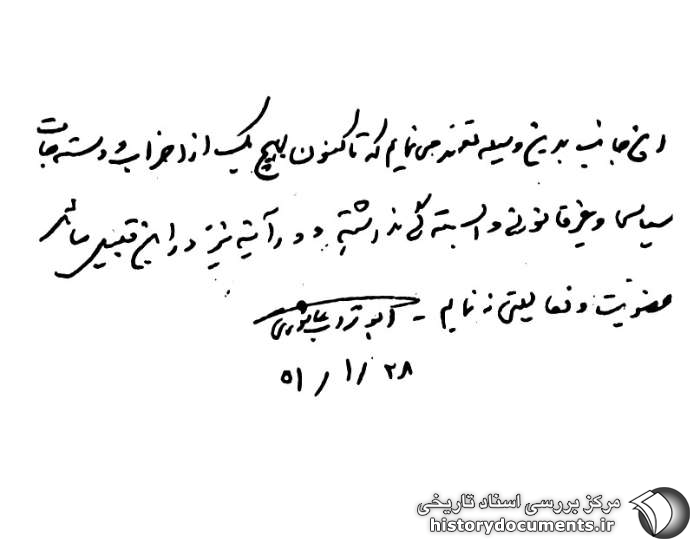 این جانب بدین وسیله تعهد می نمایم که تاکنون بهیچ یک از احزاب و دسته جات
سیاسی و غیر قانونی وابستگی نداشته و در آتیه نیز در این قبیل مسائل
عضویت و فعالیتی ننمایم - ابوتراب عاشوری
۵۱ / ۱ / ۲۸
مرکز بررسی اسناد تاریخی
historydocuments.ir